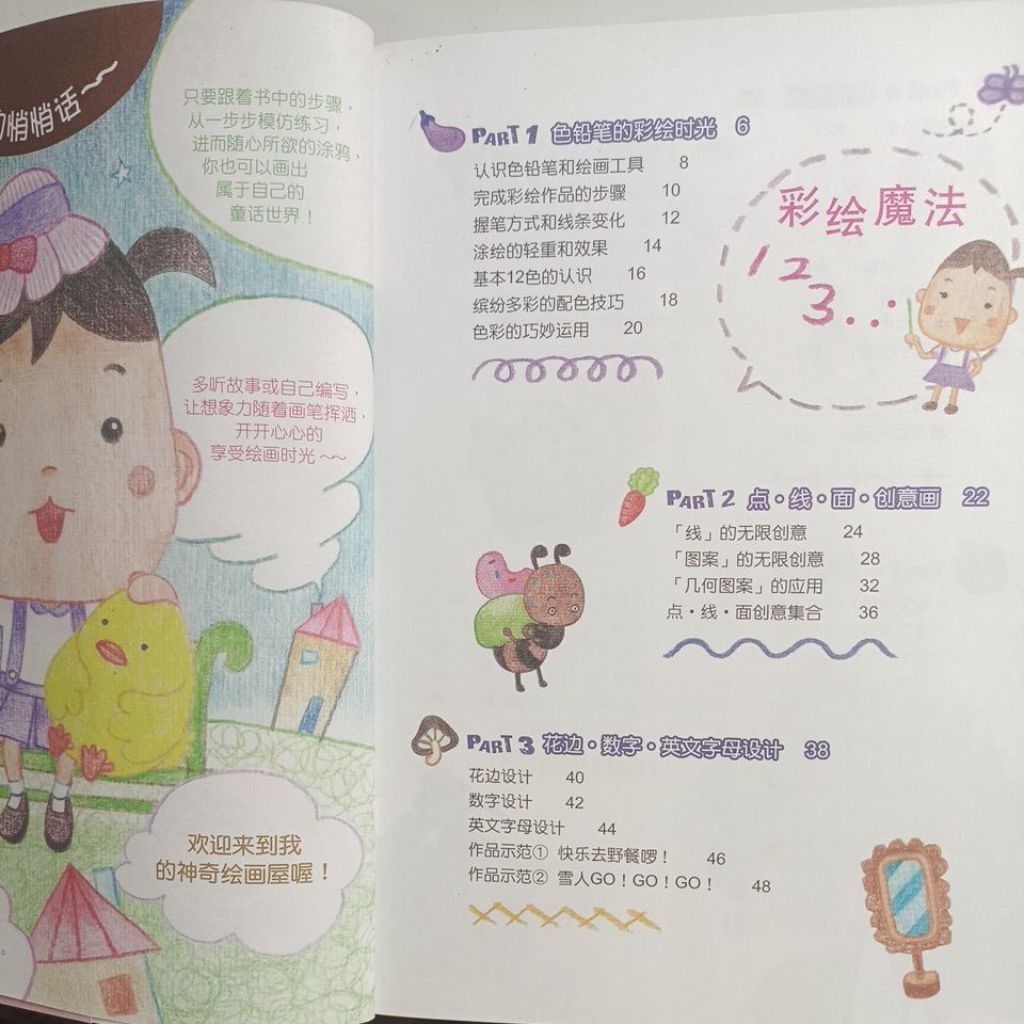 悄悄话～
只要跟着书中的步骤，
从一步步模仿练习，
进而随心所欲的涂鸦，
你也可以画出
属于自己的
童话世界！
多听故事或自己编写，
让想象力随着画笔挥洒，
开开心心的
享受绘画时光～～
欢迎来到我
的神奇绘画屋喔！
。
PART 1 色铅笔的彩绘时光 6
认识色铅笔和绘画工具 8
完成彩绘作品的步骤 10
握笔方式和线条变化 12
涂绘的轻重和效果 14
基本12色的认识 16
缤纷多彩的配色技巧 18
色彩的巧妙运用 20
彩绘魔法
1 2
3...
PART 2 点·线·面·创意画 22
「线」的无限创意 24
「图案」的无限创意 28
「几何图案」的应用 32
点·线·面创意集合 36
PART 3 花边·数字·英文字母设计 38
花边设计 40
数字设计 42
英文字母设计 44
作品示范① 快乐去野餐啰！ 46
作品示范② 雪人GO！GO！GO！ 48